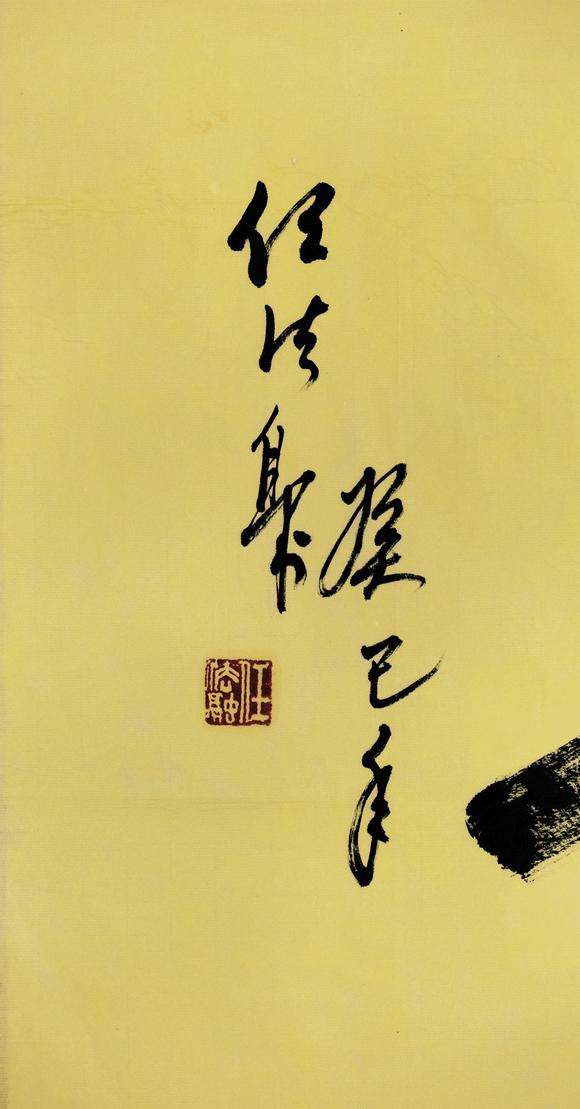 癸巳年
任法融
任
法融